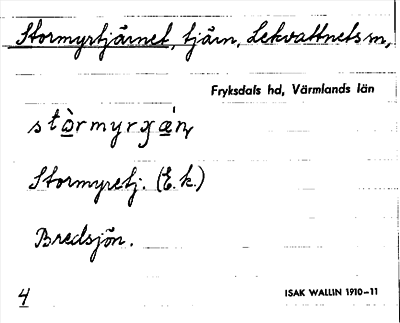 Stormyrtjärnet, tjärn, Lekvattnets sn,
Fryksdals hd, Värmlands län
Stormyretj. (E.k.)
Bredsjön.
4
ISAK WALLIN 1910–11